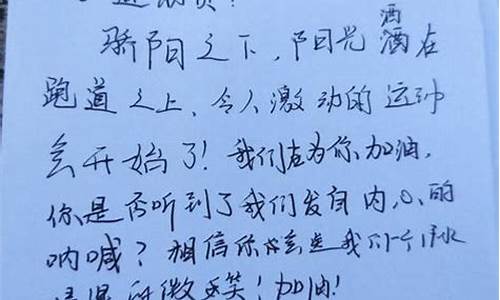 洒
骄阳之下，阳光酒在
跑道之上，令人激动的运动
会开始了！我们在为你加油，
你是否听到了我们发自内心的
呐喊？相信你会是我们
微笑！加油！